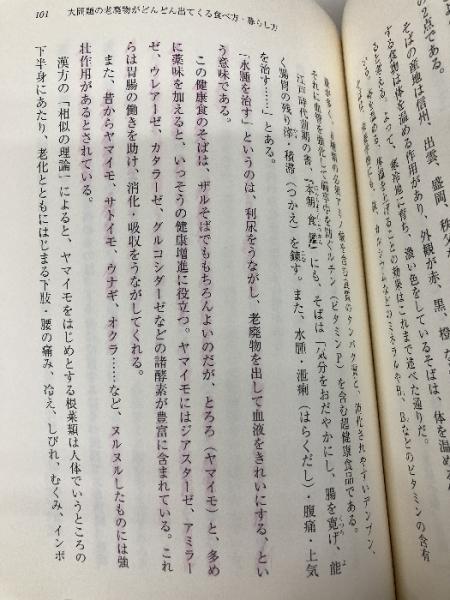 101 大問題の老廃物がどんどん出てくる食べ方・暮らし方
点である。
そばの産地は信州、出雲、盛岡、秩父
があり、外観が赤、黒、橙
する食物は体を温める作用があり、
寒冷地に育ち、濃い色をしているそばは、体を温め
る。よって、
を上げる。この効果はこれまで述べた通りだ。
カルシウムなどのミネラルやB₁、B₂などのビタミンの含有
タンパク質と、消化されやすいデンプン、
それに血管を強化して脳卒中を防ぐルチン(ビタミンP)を含む超健康食品である。
江戸時代前期の書、『本朝食鑑』にも、そばは「気分をおだやかにし、腸を寛げ、能
く腸胃の残り滓・積滞(つかえ)を錬す。また、水腫・泄痢(はらくだし)・腹痛・上気
を治す……」とある。
「水腫を治す」というのは、利尿をうながし、老廃物を出して血液をきれいにする、とい
う意味である。
この健康食のそばは、ザルそばでももちろんよいのだが、とろろ(ヤマイモ)と、多め
に薬味を加えると、いっそうの健康増進に役立つ。ヤマイモにはジアスターゼ、アミラー
ゼ、ウレアーゼ、カタラーゼ、グルコシダーゼなどの諸酵素が豊富に含まれている。これ
らは胃腸の働きを助け、消化・吸収をうながしてくれる。
また、昔からヤマイモ、サトイモ、ウナギ、オクラ……など、ヌルヌルしたものには強
壮作用があるとされている。
漢方の「相似の理論」によると、ヤマイモをはじめとする根菜類は人体でいうところの
下半身にあたり、老化とともにはじまる下肢・腰の痛み、冷え、しびれ、むくみ、インポ